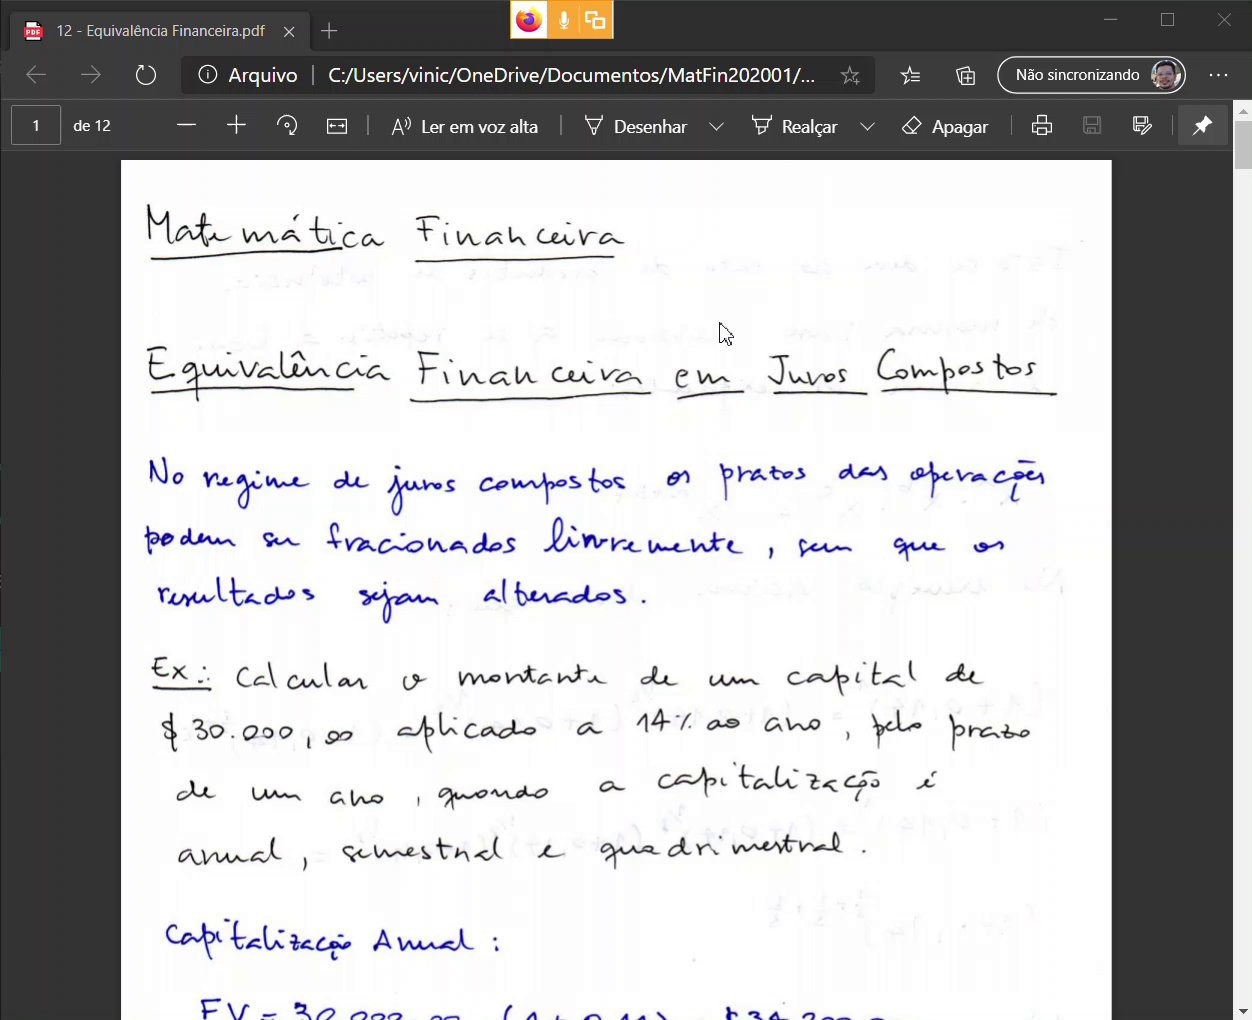 12 - Equivalência Financeira.pdf
Arquivo C:/Users/vinic/OneDrive/Documentos/MatFin202001/... Não sincronizando
1 de 12 Ler em voz alta Desenhar Realçar Apagar
Matemática Financeira
Equivalência Financeira em Juros Compostos
No regime de juros compostos os prazos das operações
podem ser fracionados livremente, sem que os
resultados sejam alterados.
Ex.: Calcular o montante de um capital de
$ 30.000,00 aplicado a 14% ao ano, pelo prazo
de um ano, quando a capitalização é
anual, semestral e quadrimestral.
Capitalização Anual:
FV = 30.000,00 (1 + 0,14) = $34.200,00